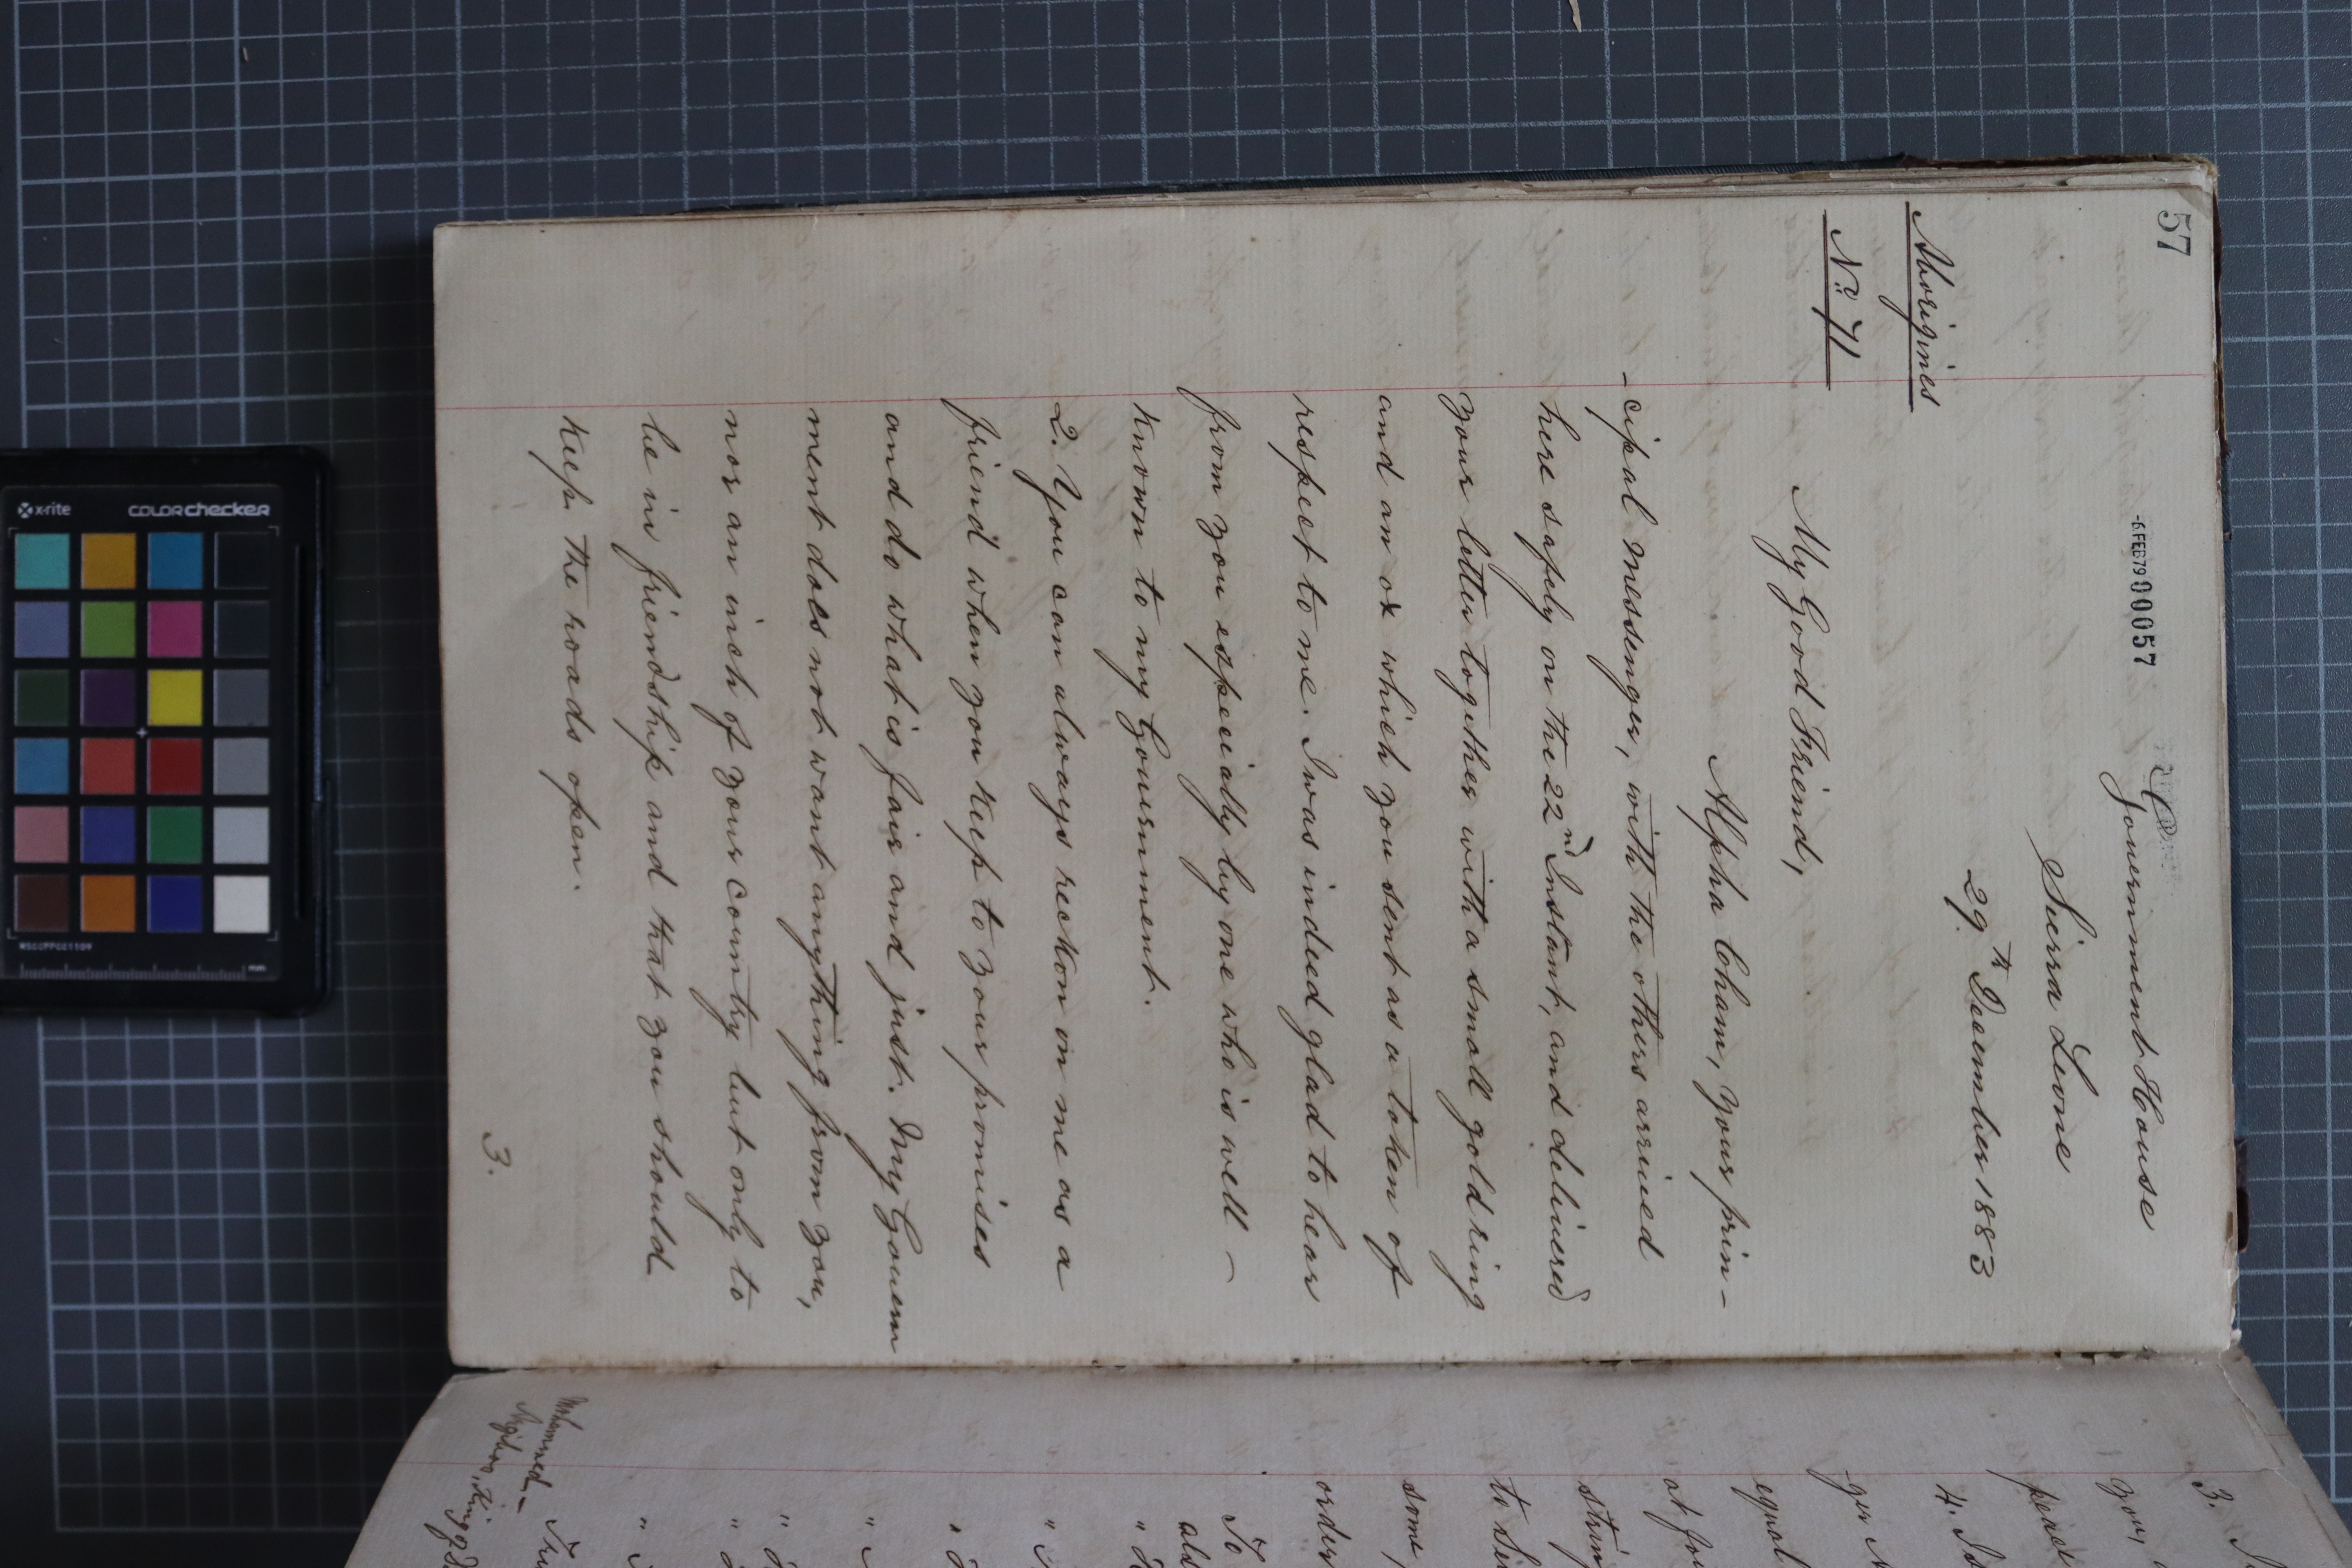 57
-6FEB79 000057
Government House
Sierra Leone
29th December 1883
Aborigines
No 71
My Good Friend,
Alpha Cham, your prin-
-cipal messenger, with the others arrived
here safely on the 22nd Instant, and delivered
your letter together with a small gold ring
and an ox which you sent as a token of
respect to me. I was indeed glad to hear
from you especially by one who is well -
known to my Government.
2. You can always reckon on me as a
friend when you keep to your promises
and do what is fair and just. My Governm
ment does not want anything from you,
nor an inch of your country but only to
be in friendship and that you should
keep the roads open.
3.
3.
you,
4.
equal
to
some
order
To
Mohammed
King of
x-rite
colorchecker
MSCCPPCC1109
mm